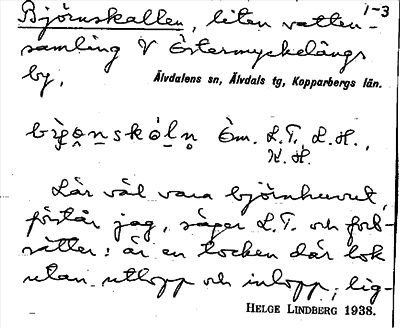 1-3
Björnskallen, liten vatten-
samling V Östermyckelängs
by.
Älvdalens sn, Älvdals tg, Kopparbergs län.
Öm. L.T., L.H.,
K.H.
Lär väl vara björnhuvut,
förstår jag, säger L.T. och fort-
sätter: är en tocken där lok
utan utlopp och inlopp; lig-
HELGE LINDBERG 1938.